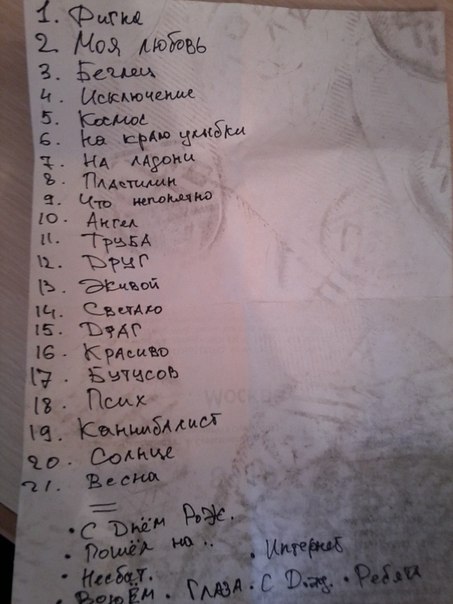 1. Фигня
2. Моя любовь
3. Беглец
4. Исключение
5. Космос
6. На краю улыбки
7. На ладони
8. Пластилин
9. Что непонятно
10. Ангел
11. Труба
12. Друг
13. Живой
14. Светало
15. Драг
16. Красиво
17. Бутусов
18. Псих
19. Каннибалист
20. Солнце
21. Весна
• С Днём Рож.
• Пошёл на..
• Интернет
• Несбат.
• Воюем • Глаза • С Дожд. • Ребята